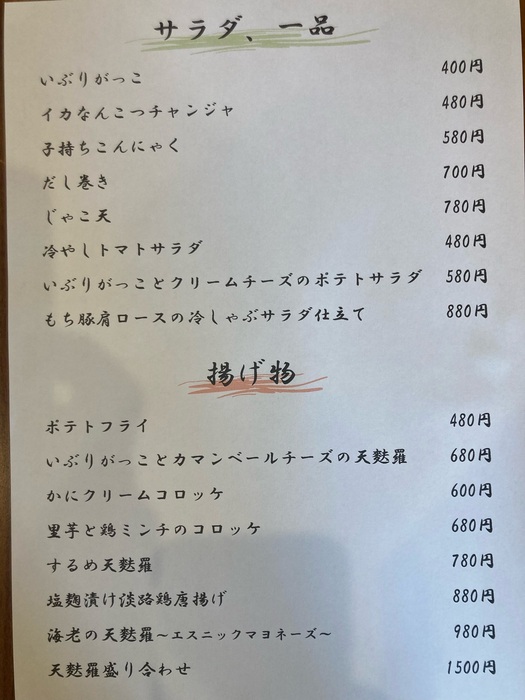 サラダ、一品
いぶりがっこ 400円
イカなんこつチャンジャ 480円
子持ちこんにゃく 580円
だし巻き 700円
じゃこ天 780円
冷やしトマトサラダ 480円
いぶりがっことクリームチーズのポテトサラダ 580円
もち豚肩ロースの冷しゃぶサラダ仕立て 880円
揚げ物
ポテトフライ 480円
いぶりがっことカマンベールチーズの天麩羅 680円
かにクリームコロッケ 600円
里芋と鶏ミンチのコロッケ 680円
するめ天麩羅 780円
塩麹漬け淡路鶏唐揚げ 880円
海老の天麩羅～エスニックマヨネーズ～ 980円
天麩羅盛り合わせ 1500円